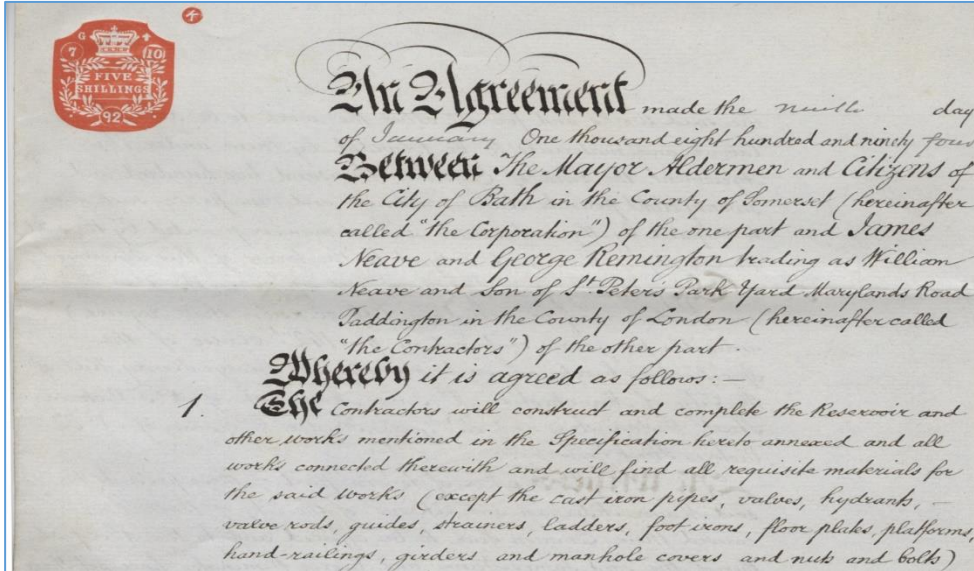 K
G
7 10
FIVE
SHILLINGS
92
An Agreement made the ninth day
of January One thousand eight hundred and ninety four
Between The Mayor Aldermen and Citizens of
the City of Bath in the County of Somerset (hereinafter
called "the Corporation") of the one part and James
Neave and George Remington trading as William
Neave and Son of St. Peter's Park Yard Marylands Road
Paddington in the County of London (hereinafter called
"the Contractors") of the other part.
Whereby it is agreed as follows:—
1. The Contractors will construct and complete the Reservoir and
other works mentioned in the Specification hereto annexed and all
works connected therewith and will find all requisite materials for
the said works (except the cast iron pipes, valves, hydrants, —
valve rods, guides, strainers, ladders, foot irons, floor plates, platforms,
hand-railings, girders and manhole covers and nuts and bolts)